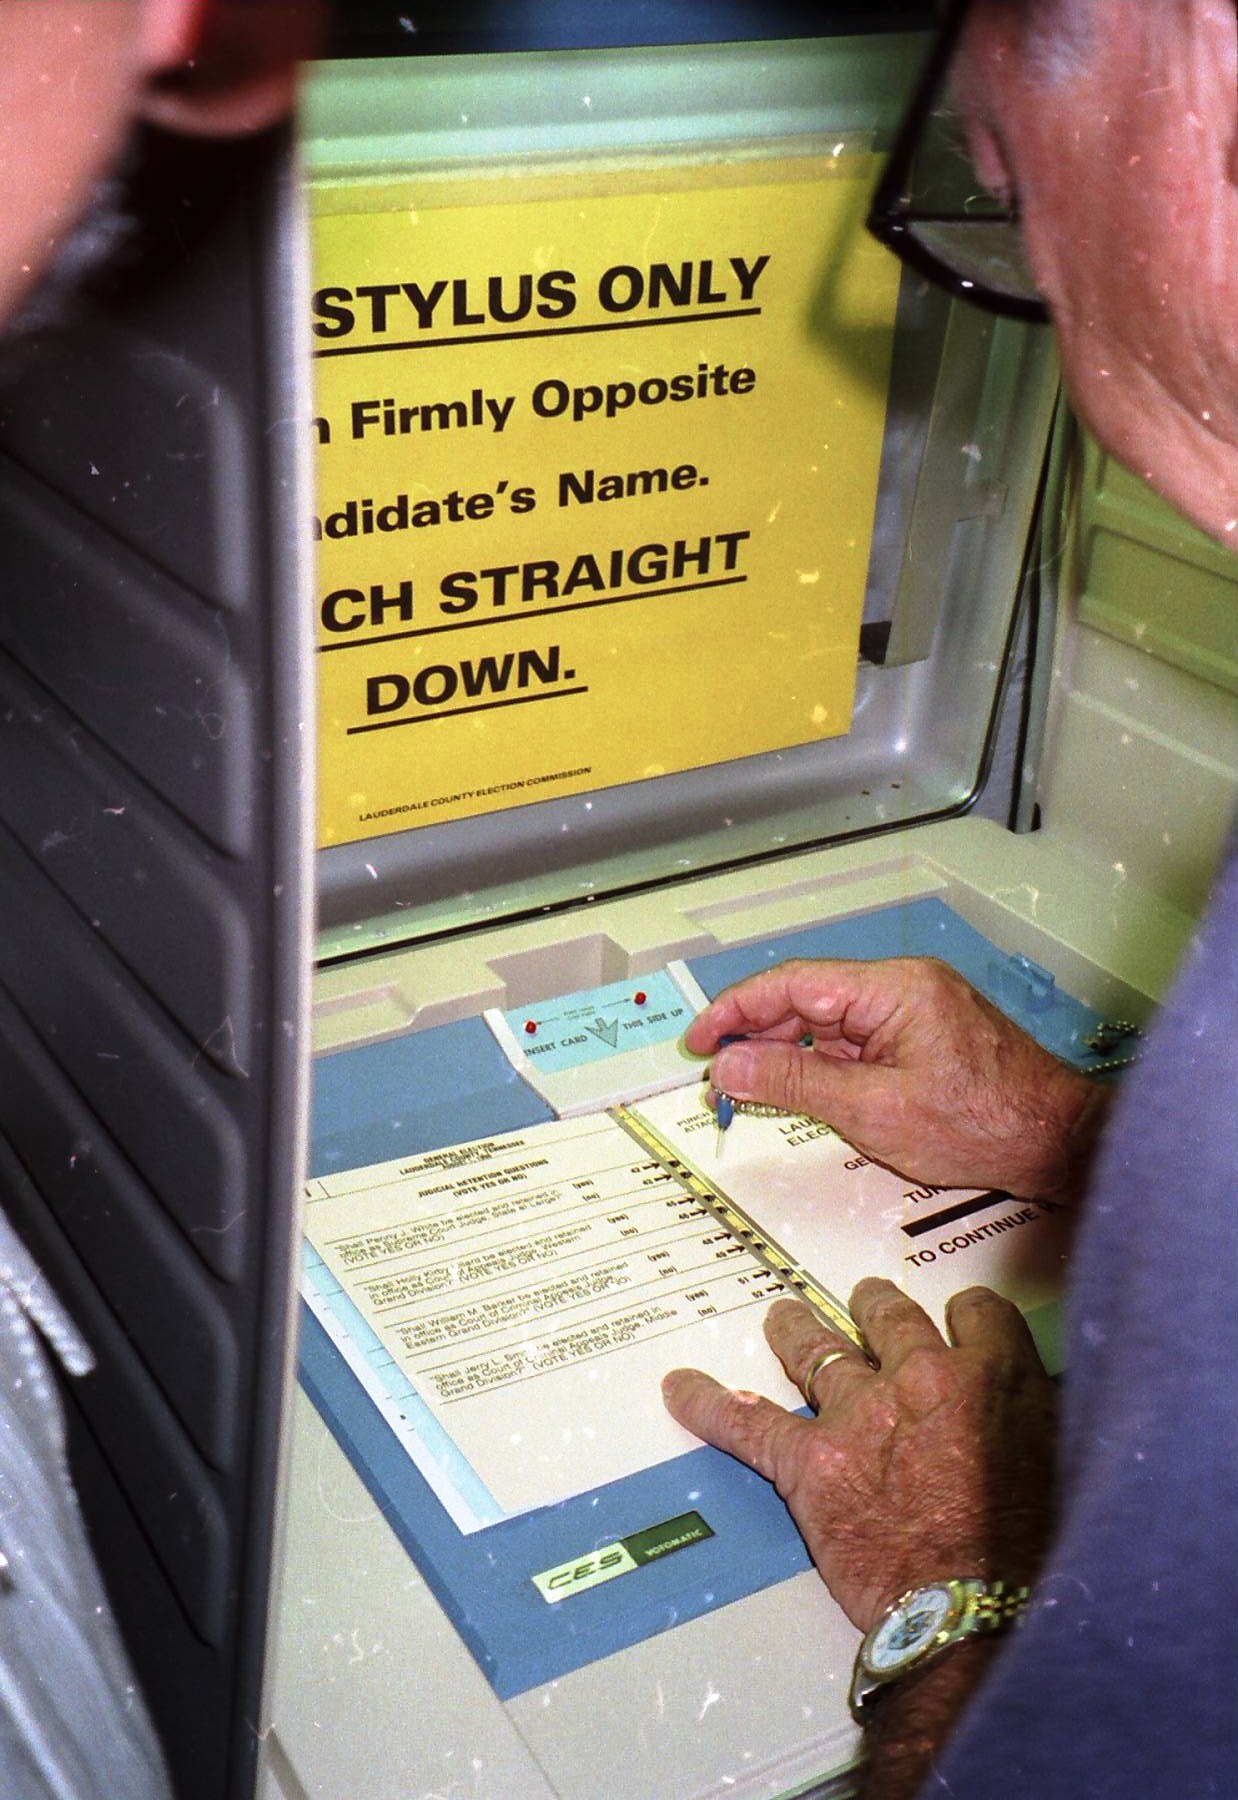 STYLUS ONLY
Firmly Opposite
didate's Name.
CH STRAIGHT
DOWN.
LAUDERDALE COUNTY ELECTION COMMISSION
INSERT CARD THIS SIDE UP
GENERAL ELECTION
LAUDERDALE COUNTY, TENNESSEE
JUDICIAL RETENTION QUESTIONS
(VOTE YES OR NO)
"Shall Penny J. White be elected and retained in (yes) 42
office as Supreme Court Judge, State at Large?" (no) 43
(VOTE YES OR NO)
"Shall Holly Kirby Lillard be elected and retained (yes) 45
in office as Court of Appeals Judge, Western (no) 46
Grand Division?" (VOTE YES OR NO)
"Shall William M. Barker be elected and retained (yes) 48
in office as Court of Criminal Appeals Judge, (no) 49
Eastern Grand Division?" (VOTE YES OR NO)
"Shall Jerry L. Smith be elected and retained in (yes) 51
office as Court of Criminal Appeals Judge, Middle (no) 52
Grand Division?" (VOTE YES OR NO)
PUNCH
LAU
ELEC
GE
TUR
TO CONTINUE
CES VOTOMATIC